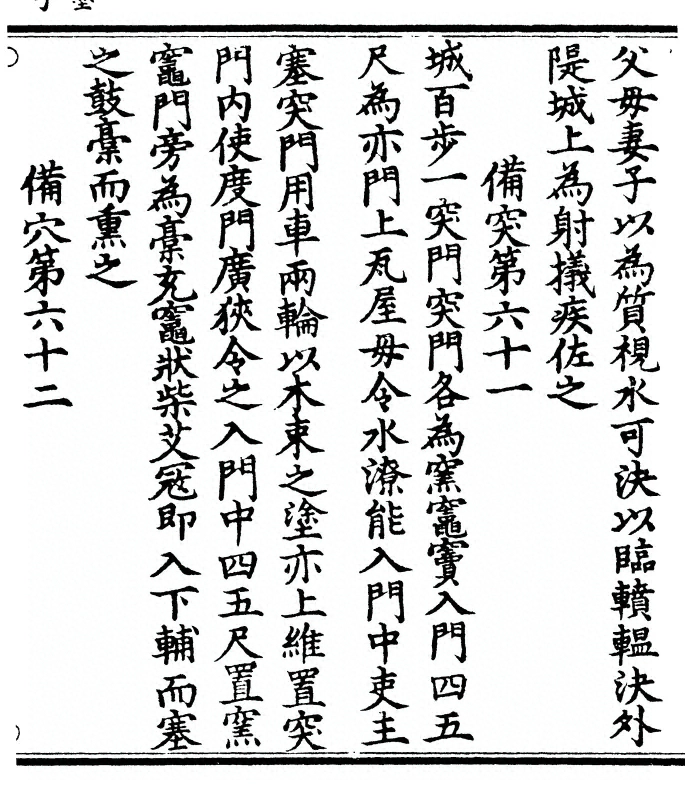 父毋妻子以為質視水可決以臨轒轀決外
隄城上為射㩘疾佐之
備突第六十一
城百步一突門突門各為窯竈竇入門四五
尺為亦門上瓦屋毋令水潦能入門中吏主
塞突門用車兩輪以木束之塗亦上維置突
門內使度門廣狹令之入門中四五尺置窯
竈門旁為橐充竈狀柴艾寇即入下輔而塞
之鼓橐而熏之
備穴第六十二